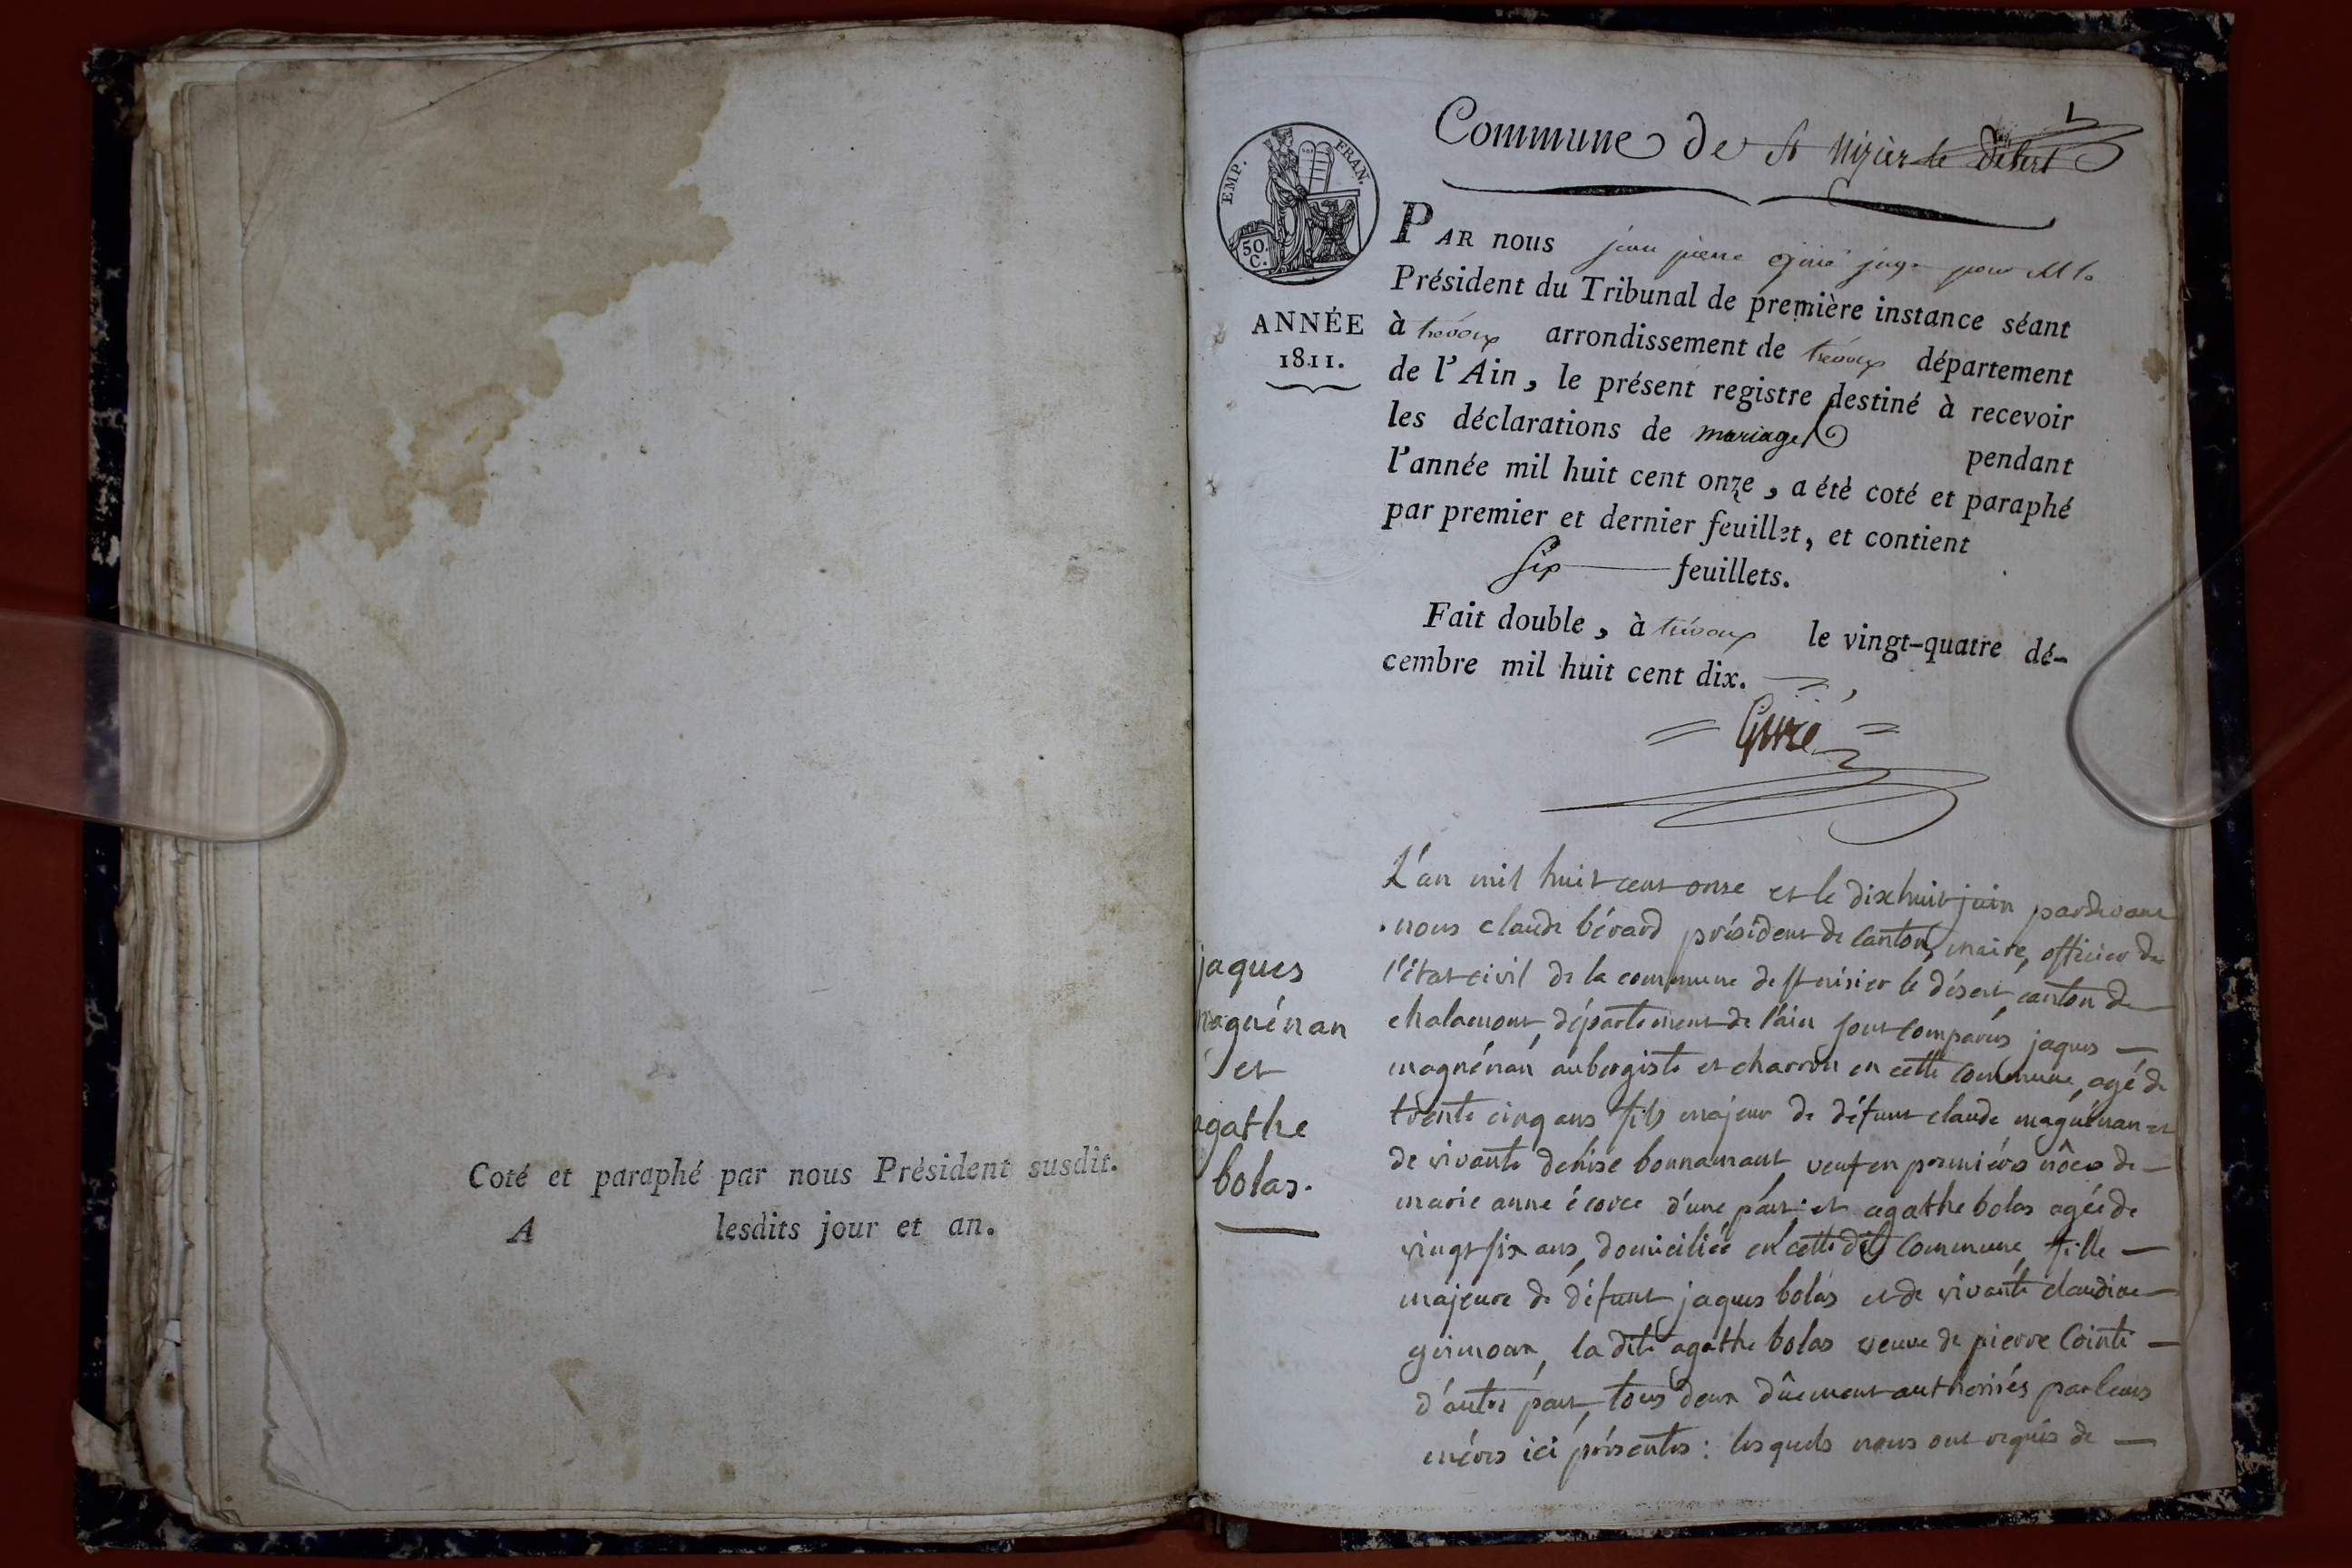 Coté et paraphé par nous Président susdit.
A lesdits jour et an.
1
Commune de St Nizier le Désert
EMP. FRAN.
50
C.
ANNÉE
1811.
PAR nous jean pierre juge pour M le
Président du Tribunal de première instance séant
à trévoux arrondissement de trévoux département
de l'Ain, le présent registre destiné à recevoir
les déclarations de mariage pendant
l'année mil huit cent onze, a été coté et paraphé
par premier et dernier feuillet, et contient
six feuillets.
Fait double, à trévoux le vingt-quatre dé-
cembre mil huit cent dix.
jaques
magnénan
et
agathe
bolas.
L'an mil huit cent onse et le dixhuit juin pardevant
nous claude bérard président de canton, maire, officier de
l'état civil de la commune de st nisier le désert, canton de
chalamont, département de l'ain sont comparus jaques —
magnénan aubergiste et charron en cette commune, agé de
trente cinq ans fils majeur de défunt claude magnénan et
de vivante denise bonnamant, veuf en premières nôces de —
marie anne écorce d'une part; et agathe bolas agée de
vingt six ans, domiciliée en cette dite commune, fille —
majeure de défunt jaques bolas et de vivante claudine —
la dite agathe bolas veuve de pierre Cointe —
d'autre part, tous deux dûement authorisés par leurs
mères ici présentes : lesquels nous ont requis de —